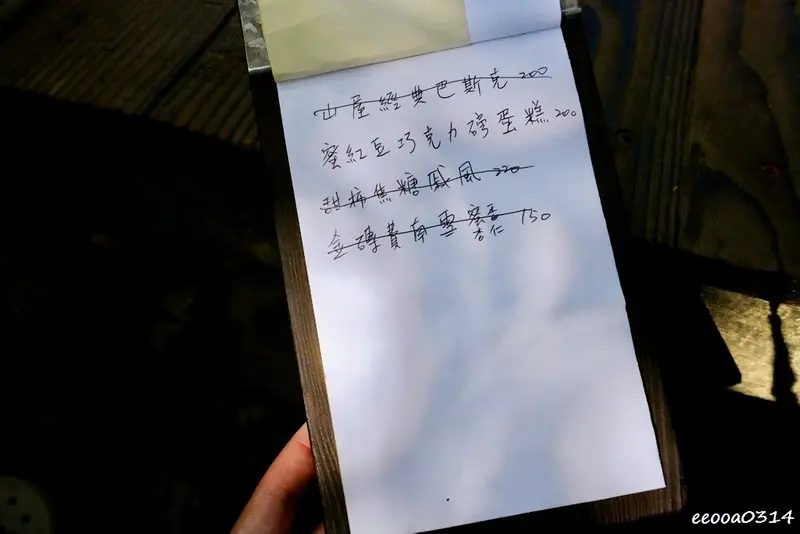 山屋經典巴斯克 200
蜜紅豆巧克力磅蛋糕 200
甜柿焦糖戚風 220
金磚費南雪 蜜香 150
杏仁
eeooa0314